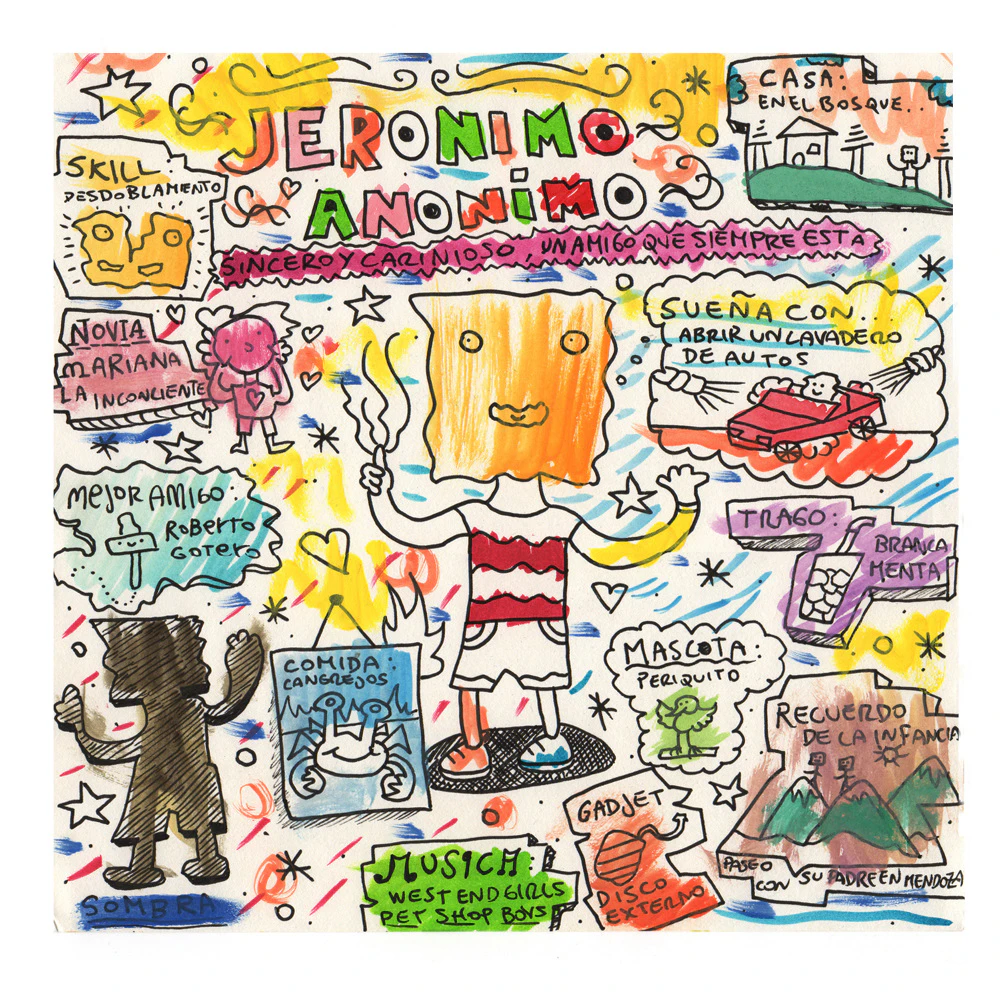 JERONIMO
ANONiMO
SINCERO Y CARINIOSO, UN AMIGO QUE SIEMPRE ESTA
CASA:
EN EL BOSQUE..
SKILL
DESDOBLAMENTO
NOVIA
MARIANA
LA INCONCIENTE
SUEÑA CON...
ABRIR UN LAVADERO
DE AUTOS
MEJOR AMIGO:
ROBERTO
GOTERO
TRAGO:
BRANCA
MENTA
COMIDA:
CANGREJOS
MASCOTA:
PERIQUITO
RECUERDO
DE LA INFANCIA
PASEO
CON SU PADRE EN MENDOZA
GADJET
DISCO
EXTERNO
MUSICA:
WEST END GIRLS
PET SHOP BOYS
SOMBRA